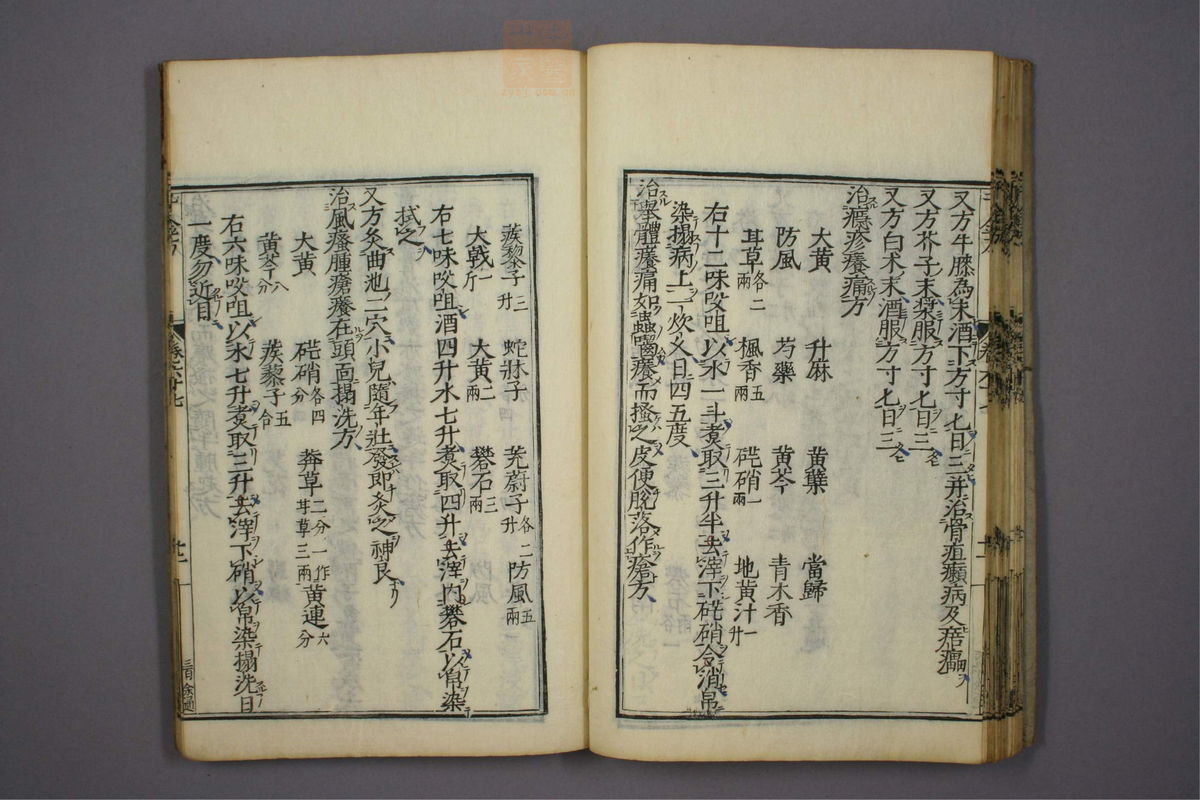 又方牛膝為末酒下方寸七日三并治骨疽癲病及㾦㿔
又方芥子末漿服方寸七日三
又方白朮末酒服方寸七日三
治癮疹癢痛方
大黃 升麻 黃蘗 當歸
防風 芍藥 黃芩 青木香
茸草各二兩 楓香五兩 硭硝一兩 地黃汁一升
右十二味㕮咀以水一斗煮取三升半去滓下硭硝令消帛
染搨病上一炊久日四五度
治舉體癢痛如蟲囓癢而搔之皮便脫落作瘡方
蒺藜子三升 蛇牀子 茺蔚子各二升 防風五兩
大戟一斤 大黃二兩 礬石三兩
右七味㕮咀酒四升水七升煮取四升去滓內礬石以帛染
拭之
又方灸曲池二穴小兒隨年壯發即灸之神良
治風瘙腫瘡癢在頭面搨洗方
大黃 硭硝各四分 莽草二分一作茸草三兩 黃連六分
黃芩八分 蒺藜子五合
右六味㕮咀以水七升煮取三升去滓下硝以帛染搨洗日
一度勿近目